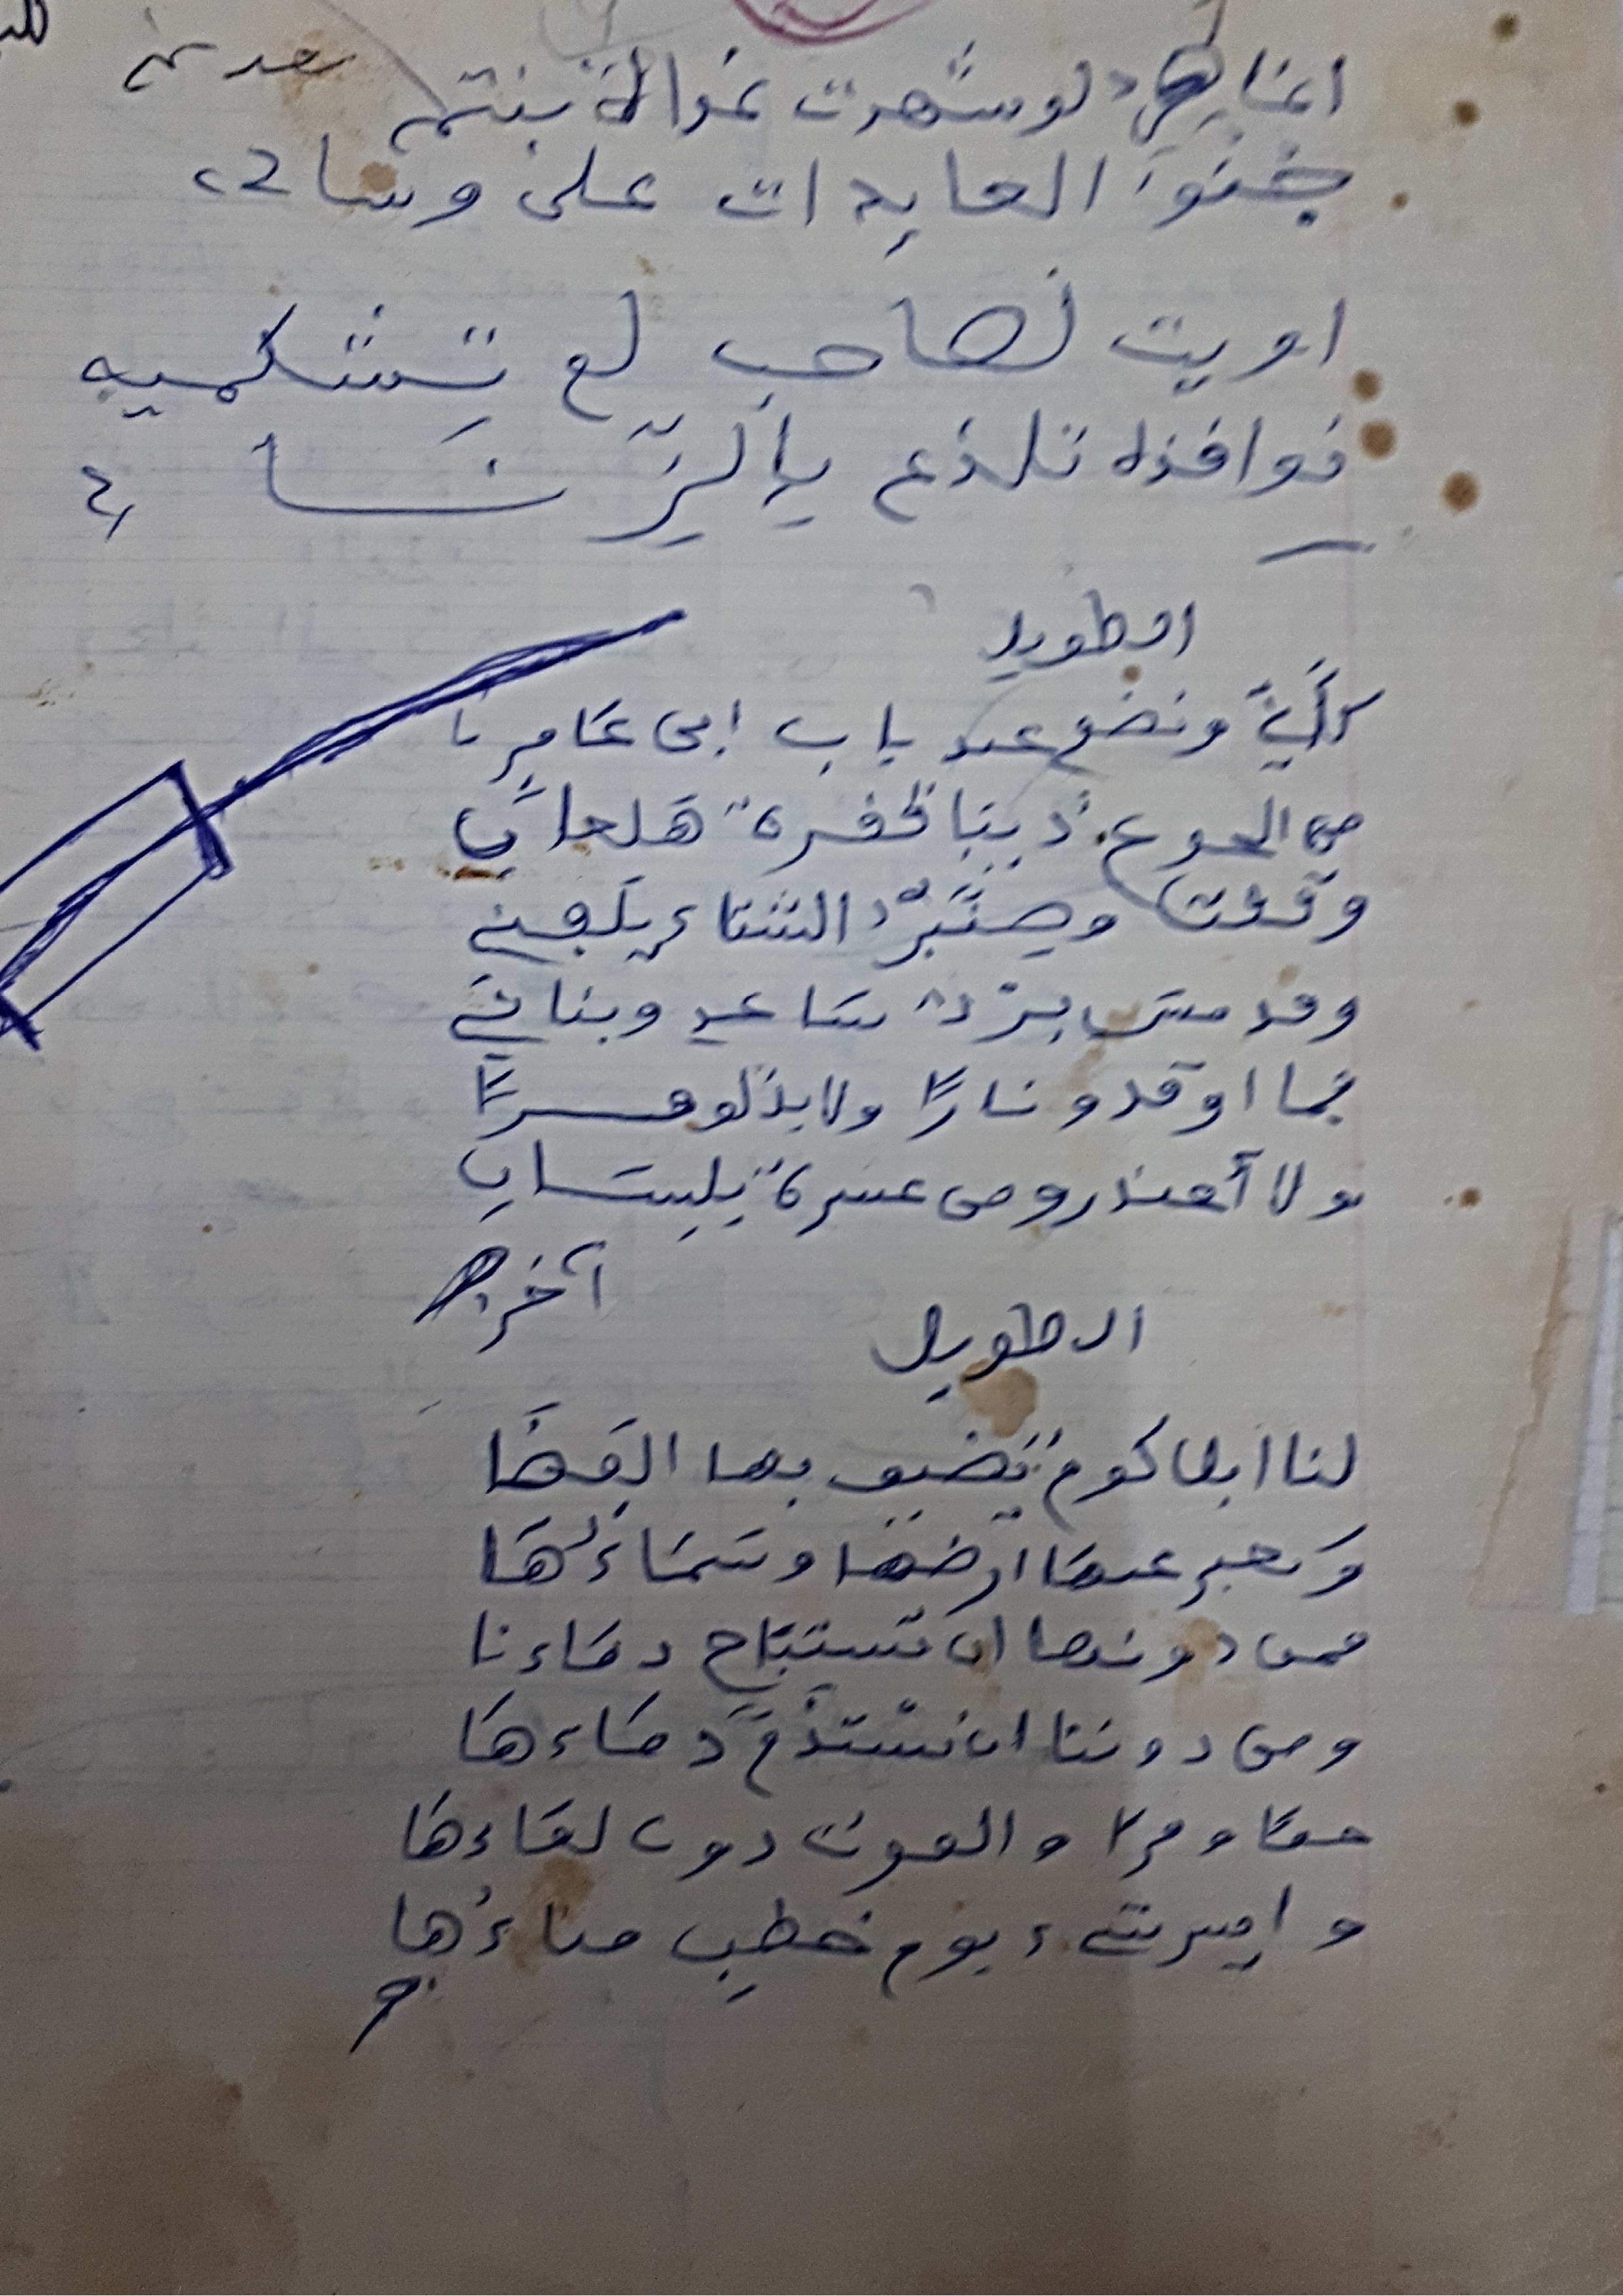 لو شهدت غداة بنتم
جنوَء العايدات على وسادي
اويت لصاحب لم تِشكميه
نوافذه تلذع بالزّنَاد
الطويل
كأنِّي ونضوي عند باب ابى عَامِر
من الجوع ذيبا قفرة هَلعانِ
وقفت وصِنَّبرُ الشتاءِ يلفني
وقد مس بردٌ ساعدي وبناني
فما اوقدو نارًا ولا بذلو قرًا
ولا أعتذرو من عسرة بلسانِ
آخر
الطويل
لنا ابل كوم تضيق بها الفضَا
وَيغبر عنها ارضها وسَمَاءُهَا
فمن دونها ان تستبَاح دمَاءنا
ومن دوننا ان نستذمَّ دمَاءهَا
حمًا ومرا والموت دون لقاءهَا
وايسر شيء يوم خطبٍ فناءُها